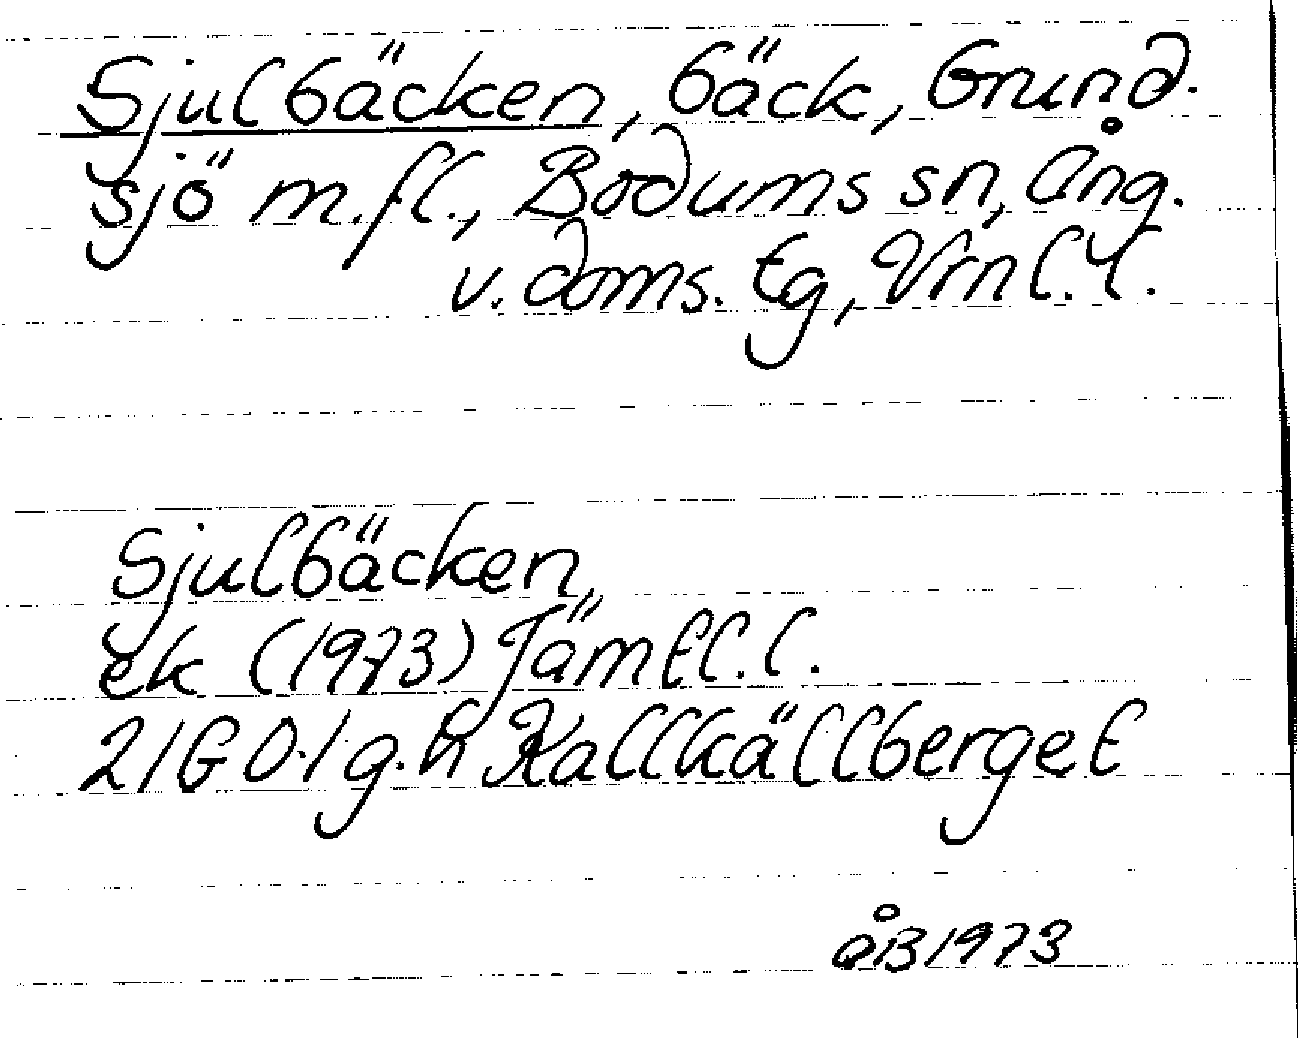 Sjulbäcken, bäck, Grund-
sjö m.fl., Bodums sn, Ång.
v. doms. tg, Vrnl. l.
Sjulbäcken,
ek (1973) Jämtl. l.
21G 0-1 g.h Kallkällberget
åB 1973